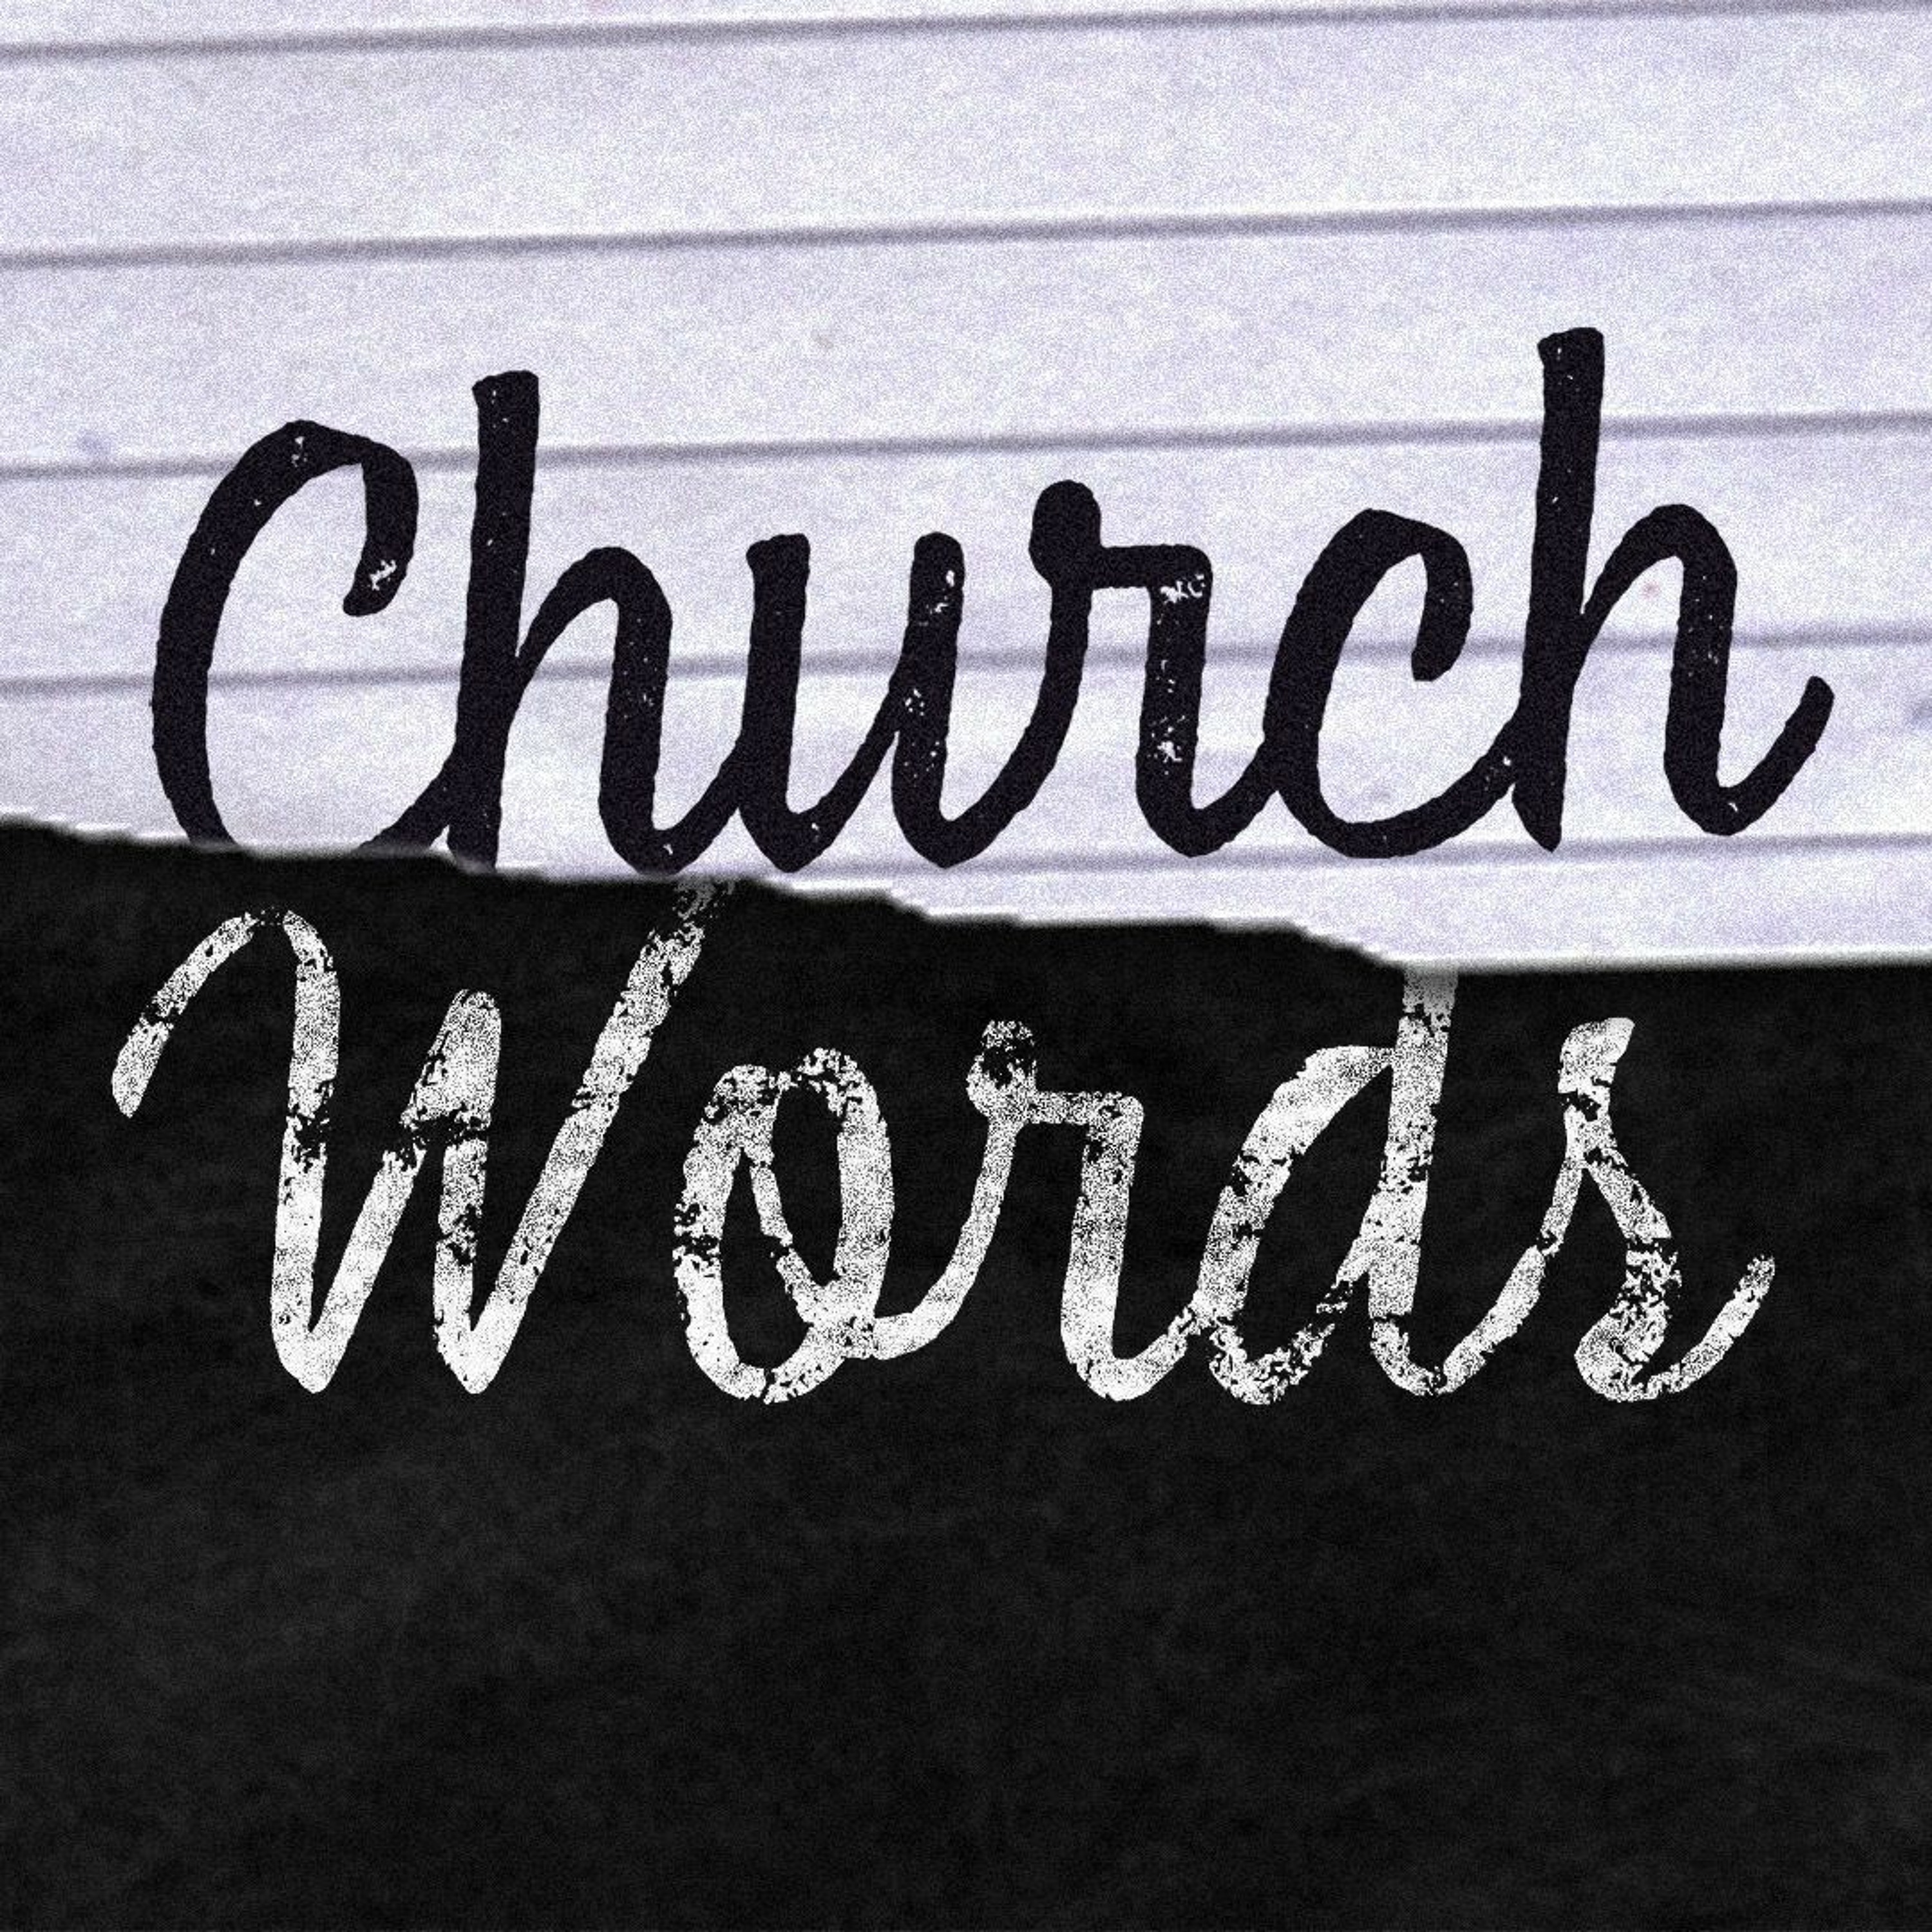 Church
Words